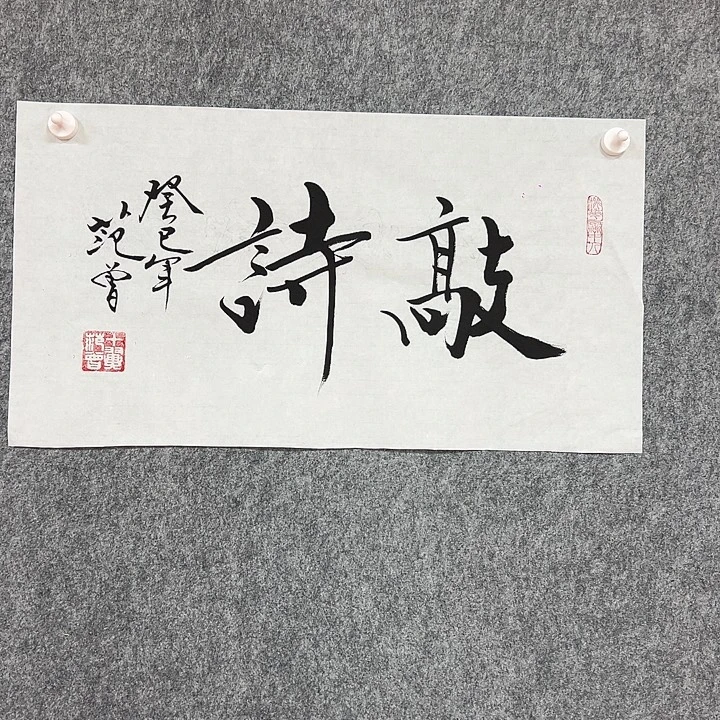 敲詩
癸巳年
范曾